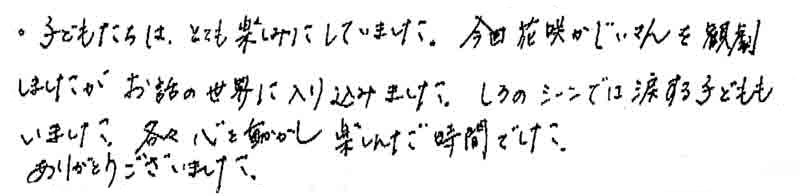 。子どもたちは、とても楽しみにしていました。今回花咲かじいさんを観劇
しましたがお話の世界に入り込みました。しろのシーンでは涙する子どもも
いました。各々心を動かし楽しんだ時間でした。
ありがとうございました。